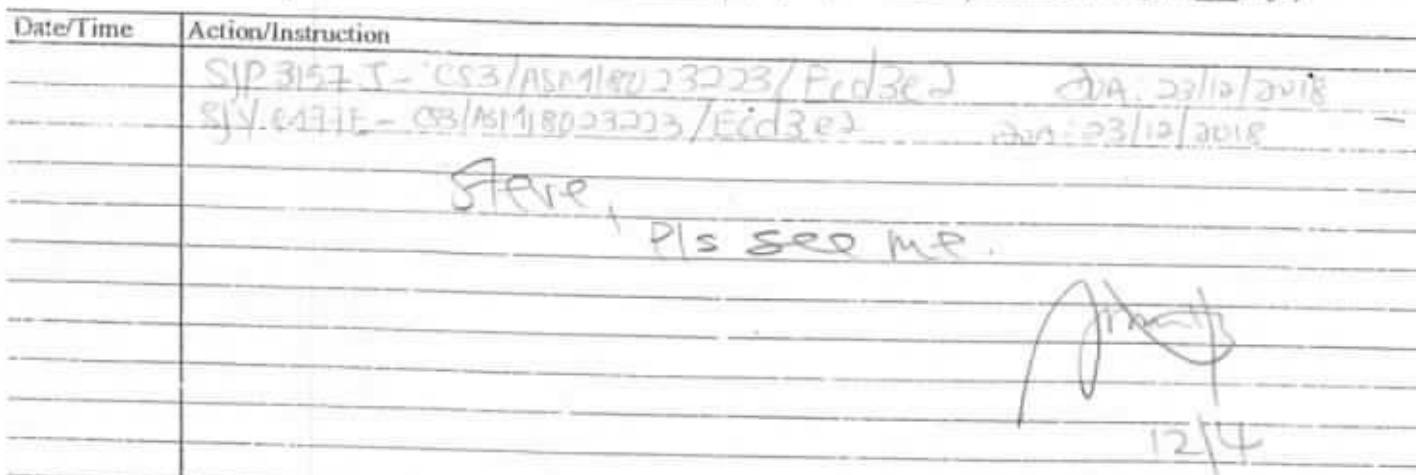 Date/Time Action/Instruction
SJP 3157 J - CS3/ASM18023223/Ecd3e2 DOA: 23/12/2018
CS3/ASM18023223/Ecd3e2 DOA: 23/12/2018
Steve,
Pls see me.
12/4